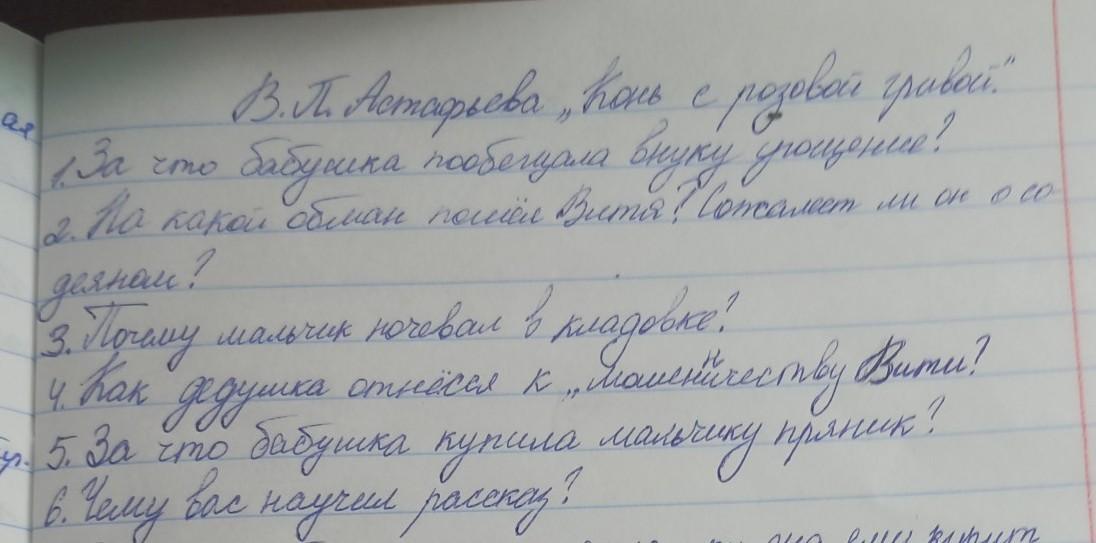 ая
В.П. Астафьева „Конь с розовой гривой."
1. За что бабушка пообещала внуку угощение?
2. На какой обман пошёл Витя? Сожалеет ли он о со-
деяном?
3. Почему мальчик ночевал в кладовке?
4. Как дедушка отнёсся к „мошенничеству Вити?
5. За что бабушка купила мальчику пряник?
6. Чему вас научил рассказ?
она ему купит